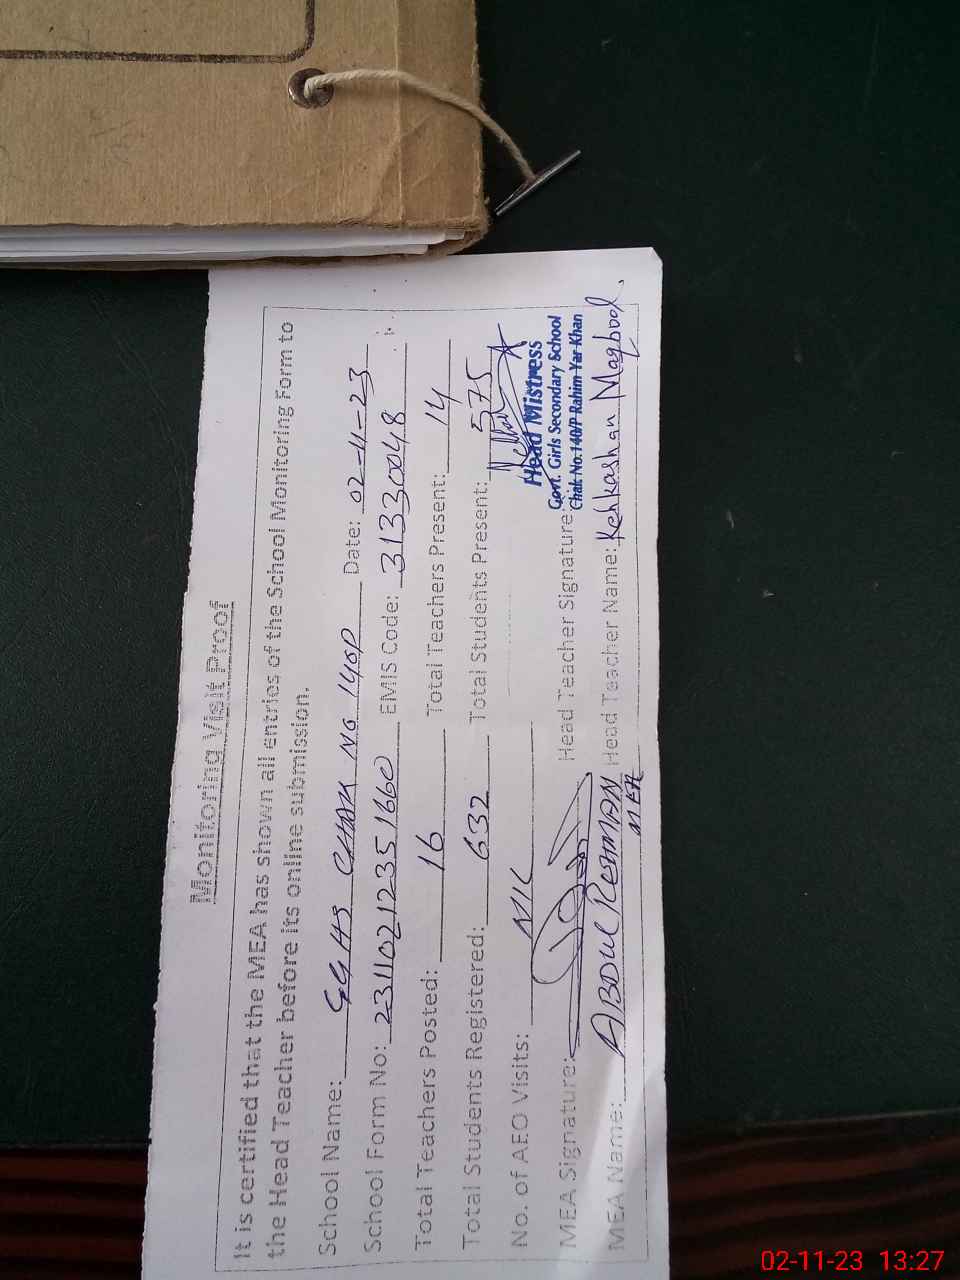 Monitoring Visit Proof
It is certified that the MEA has shown all entries of the School Monitoring Form to
the Head Teacher before its online submission.
School Name: GGHS CHAK NO 140P Date: 02-11-23
School Form No: 23110212351660 EMIS Code: 31330048
Total Teachers Posted: 16 Total Teachers Present: 14
Total Students Registered: 632 Total Students Present: 575
No. of AEO Visits: NIL
Head Mistress
Govt. Girls Secondary School
Chak No.140/P Rahim Yar Khan
MEA Signature: Head Teacher Signature:
MEA Name: ABDUL REHMAN Head Teacher Name: Kehkashan Maqbool
MEA
02-11-23 13:27